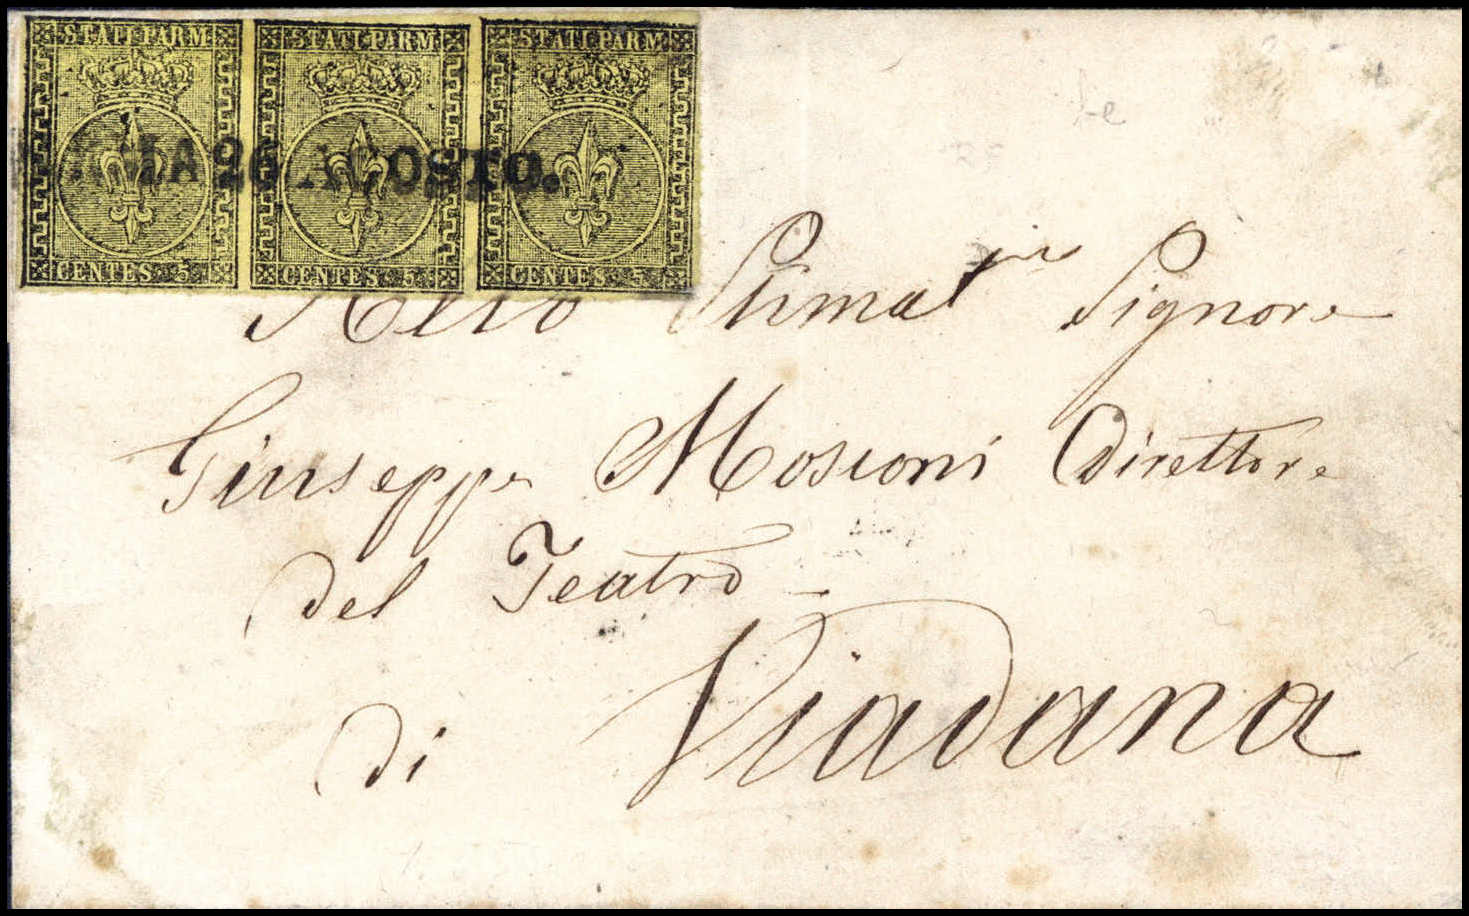 STATI PARM STATI PARM STATI PARM
MA 26 AGOSTO.
CENTES. 5 CENTES. 5 CENTES. 5
Signore
Giuseppe Mosconi Direttore
del Teatro
di Viadana